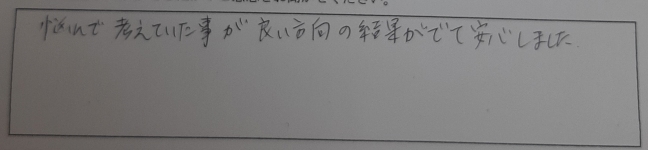 ください。
悩んで考えていた事が良い方向の結果がでて安心しました